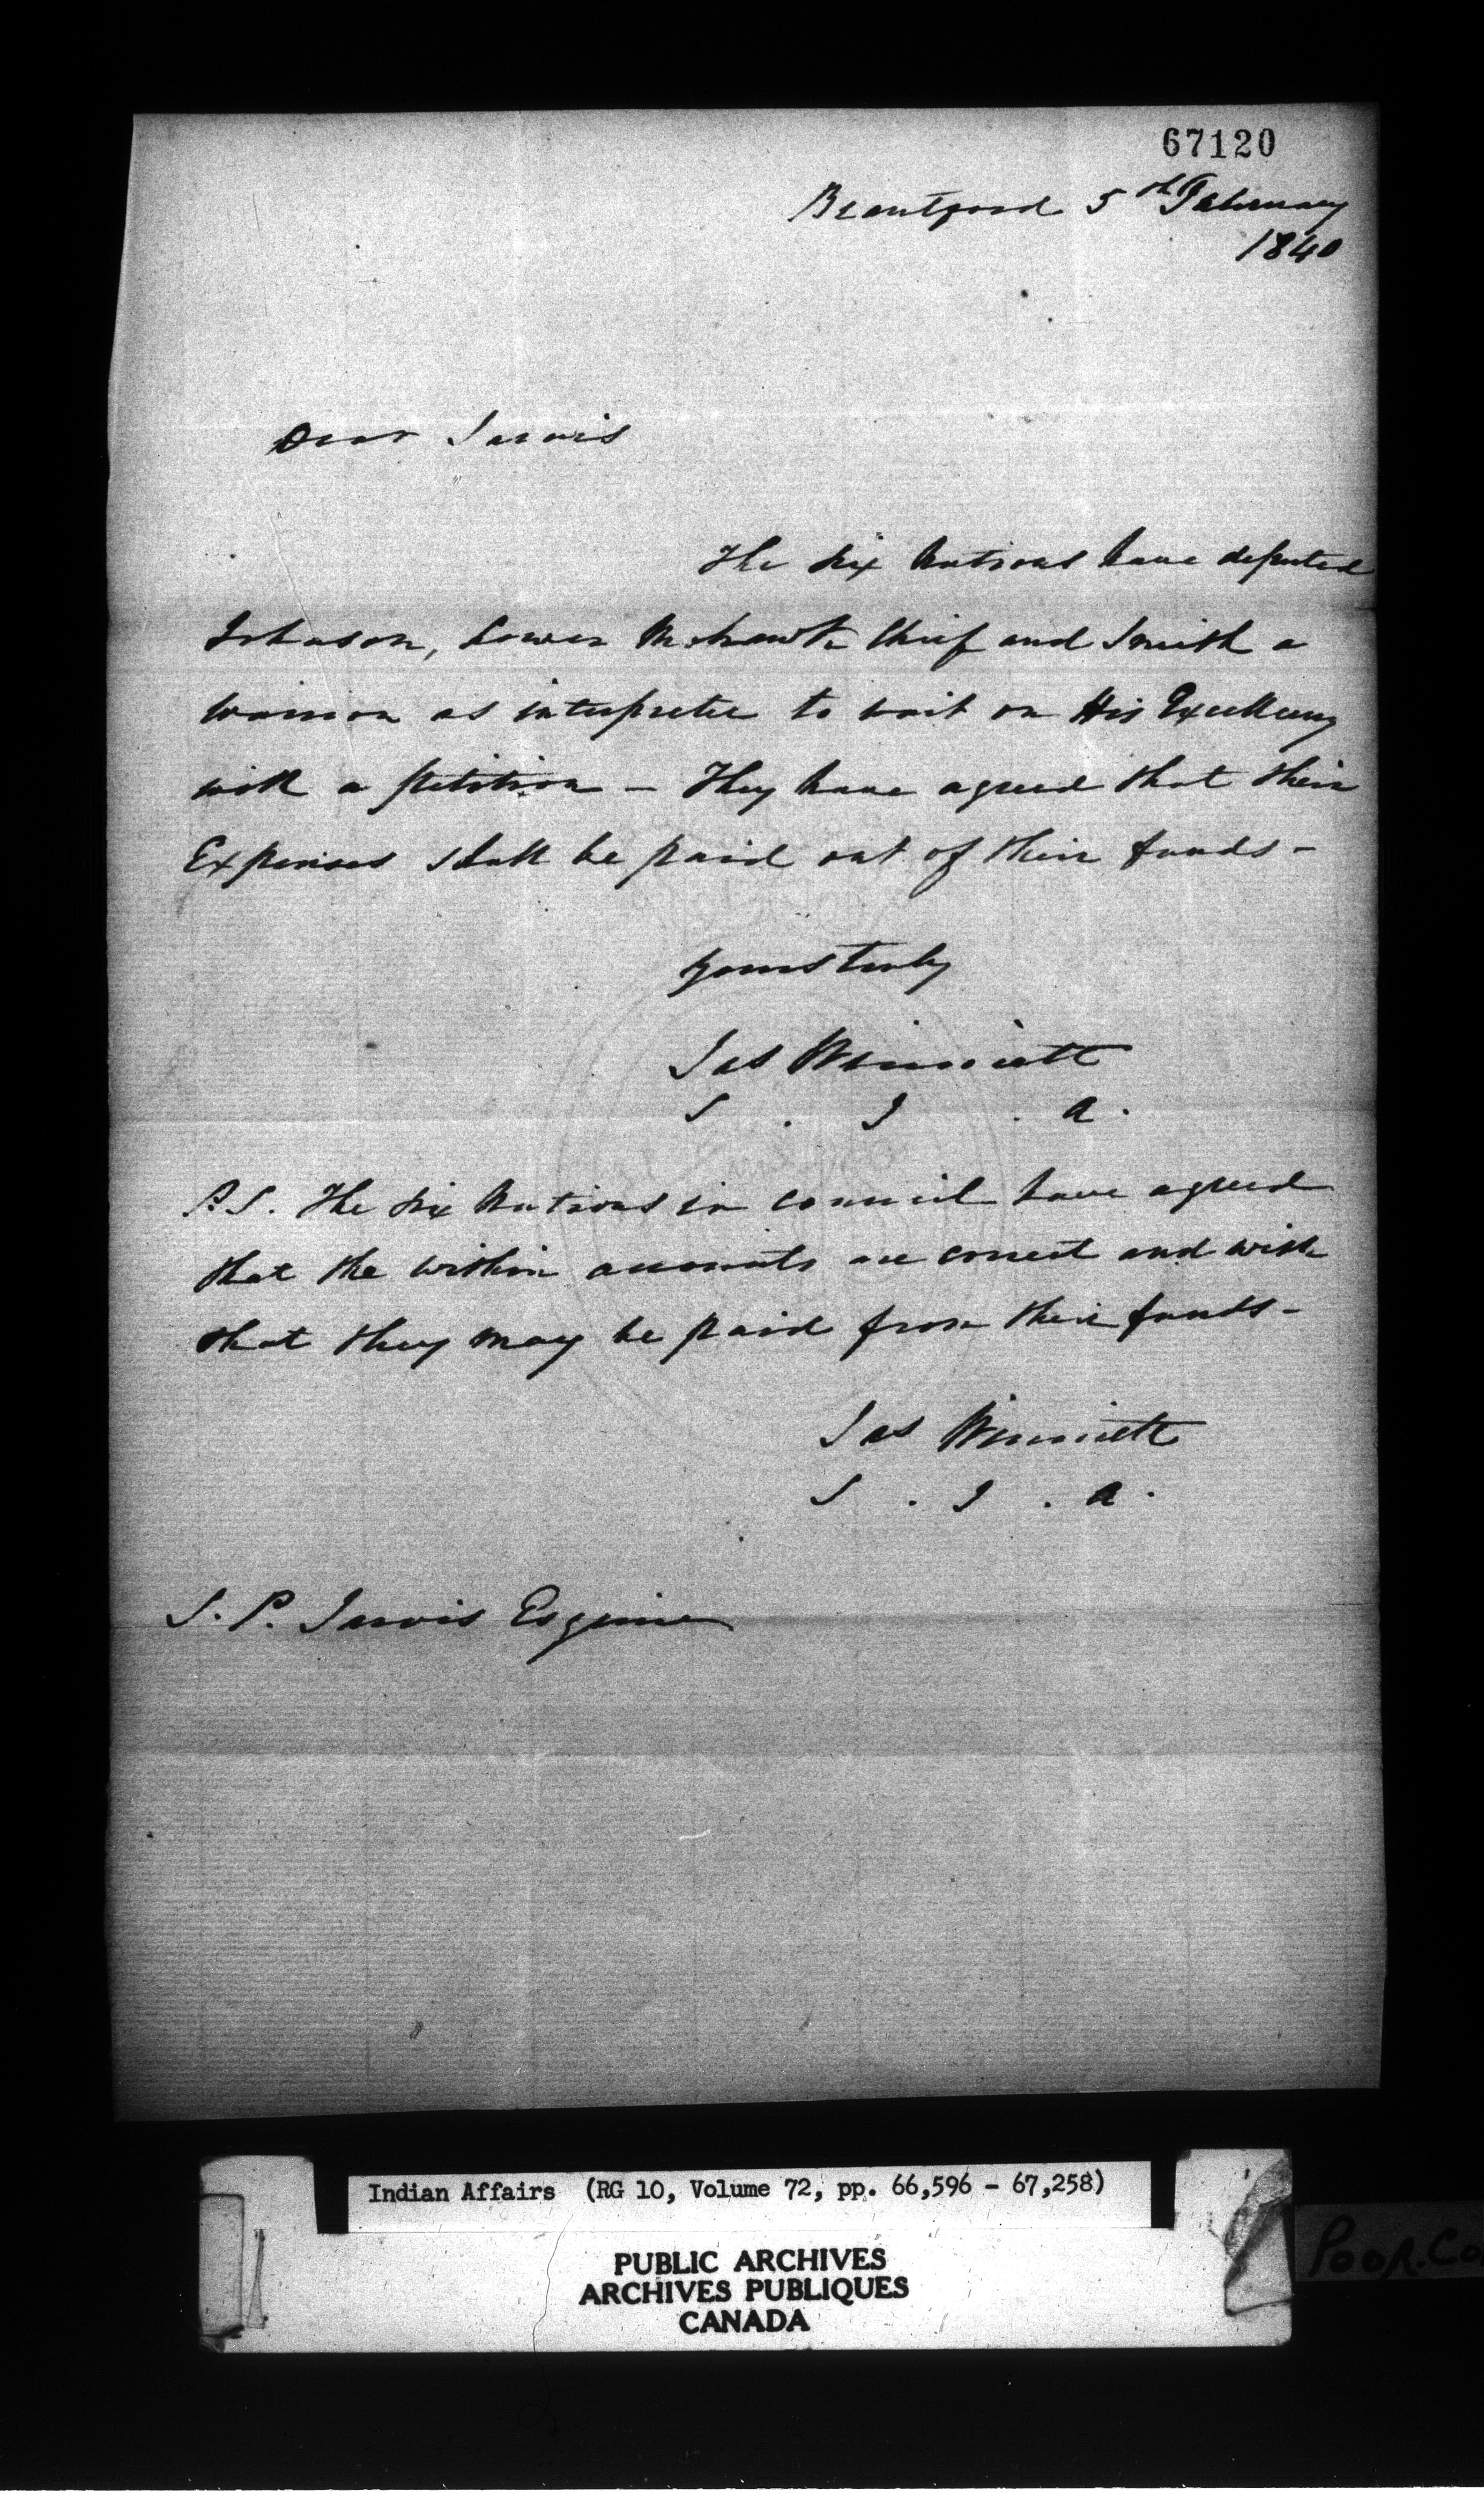 67120
Brantford 5th February
1840
Dear Jarvis
The Six Nations have deputed
Johnson, Lower Mohawk Chief and Smith a
Warrior as interpreter to wait on His Excellency
with a petition - They have agreed that their
Expenses shall be paid out of their funds -
Yours truly
Jas Winniett
S . I . A .
P.S. The Six Nations in Council have agreed
that the within accounts are correct and wish
that they may be paid from their funds -
Jas Winniett
S . I . A .
S. P. Jarvis Esquire
Indian Affairs (RG 10, Volume 72, pp. 66,596 - 67,258)
PUBLIC ARCHIVES
ARCHIVES PUBLIQUES
CANADA
POOR.CO